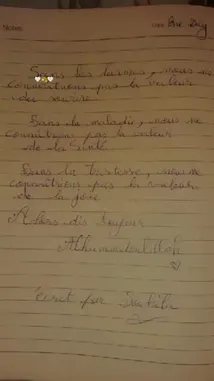 Notes
Date
Sans les larmes, nous ne
connaîtrions pas la valeur
du sourire
Sans la maladie, nous ne
connaîtrions pas la valeur
de la Santé
Sans la Tristesse, nous ne
connaîtrions pas la valeur
de la joie
Alors dis Toujour
Alhumdoulillah
écrit par